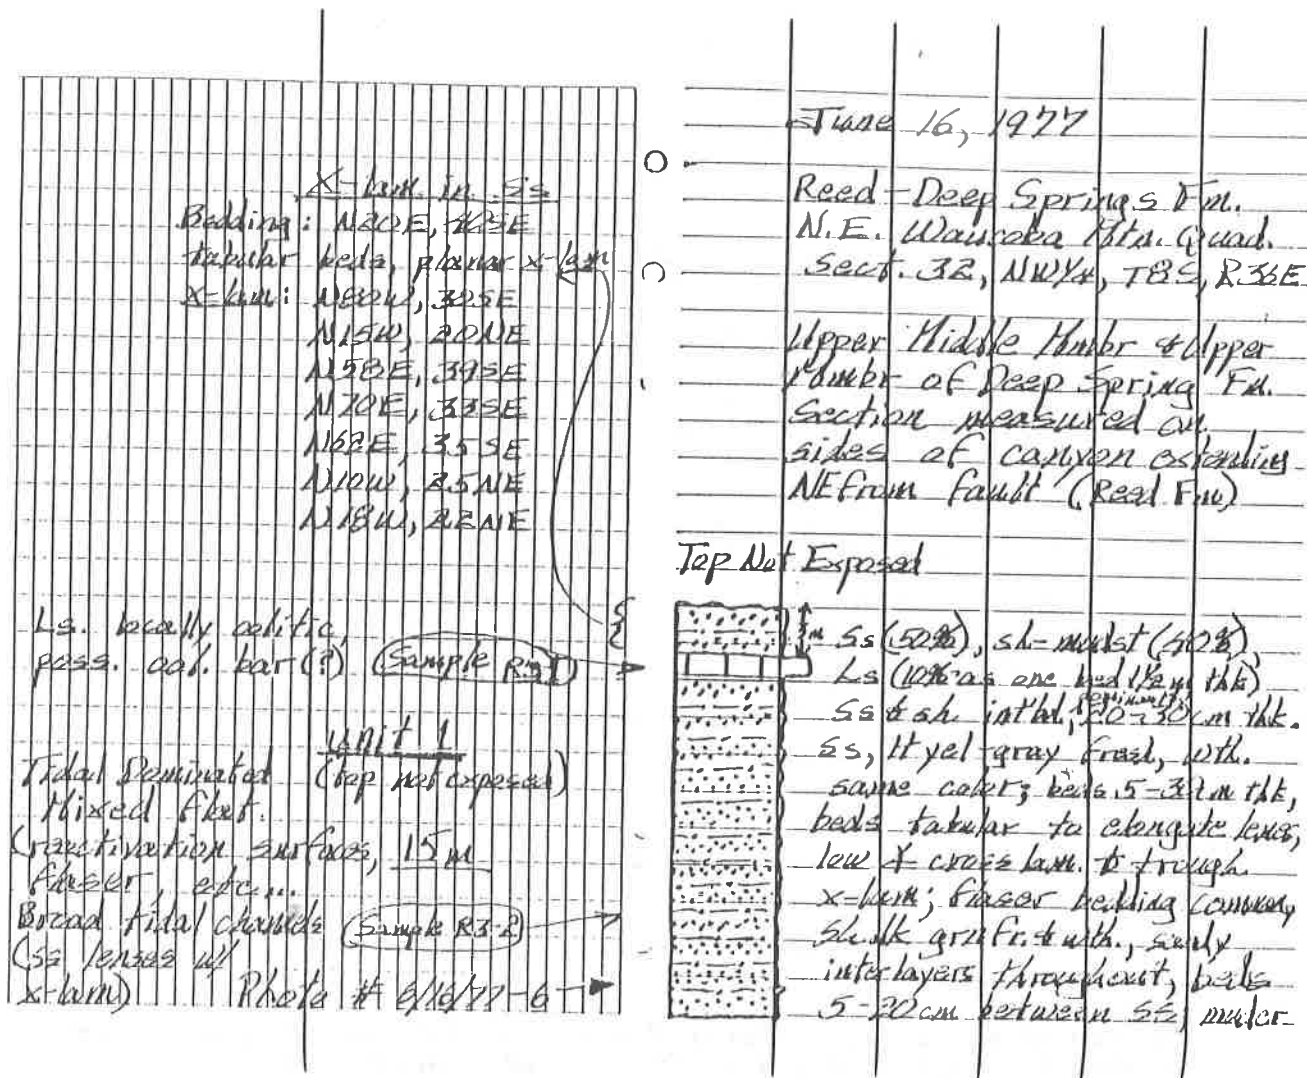 X-lam. in Ss
Bedding: N20E, 42SE
tabular beds, planar x-lam
x-lam: N80W, 30SE
N15W, 20NE
N58E, 39SE
N70E, 33SE
N62E, 35SE
N10W, 25NE
N18W, 22NE
Ls. locally oolitic,
poss. ool. bar(?) (Sample R3-1)
Unit 1
Tidal Dominated (top not exposed)
Mixed flat.
(reactivation surfaces, 15m
flaser, etc...
Broad tidal channels (Sample R3-2)
(ss lenses w/
x-lam) Photo # 6/16/77-6
June 16, 1977
Reed-Deep Springs Fm.
N.E. Waucoba Mtn. Quad.
Sect. 32, NW1/4, T8S, R36E
Upper Middle Mmbr & Upper
Mmbr of Deep Spring Fm.
Section measured on
sides of canyon extending
NE from fault (Reed Fm)
Top Not Exposed
m
Ss (50%), sh-mudst (40%),
Ls (10% as one bed 1/2 m thk)
Ss & sh intbd, 20-30cm thk.
Ss, lt yel-gray fresh, wth.
same color; beds 5-30 m thk,
beds tabular to elongate lenses,
low ∡ cross lam. & trough
x-lam; flaser bedding common,
Sh dk grn fr. & wth., sandy
interlayers throughout, beds
5-20cm between ss,